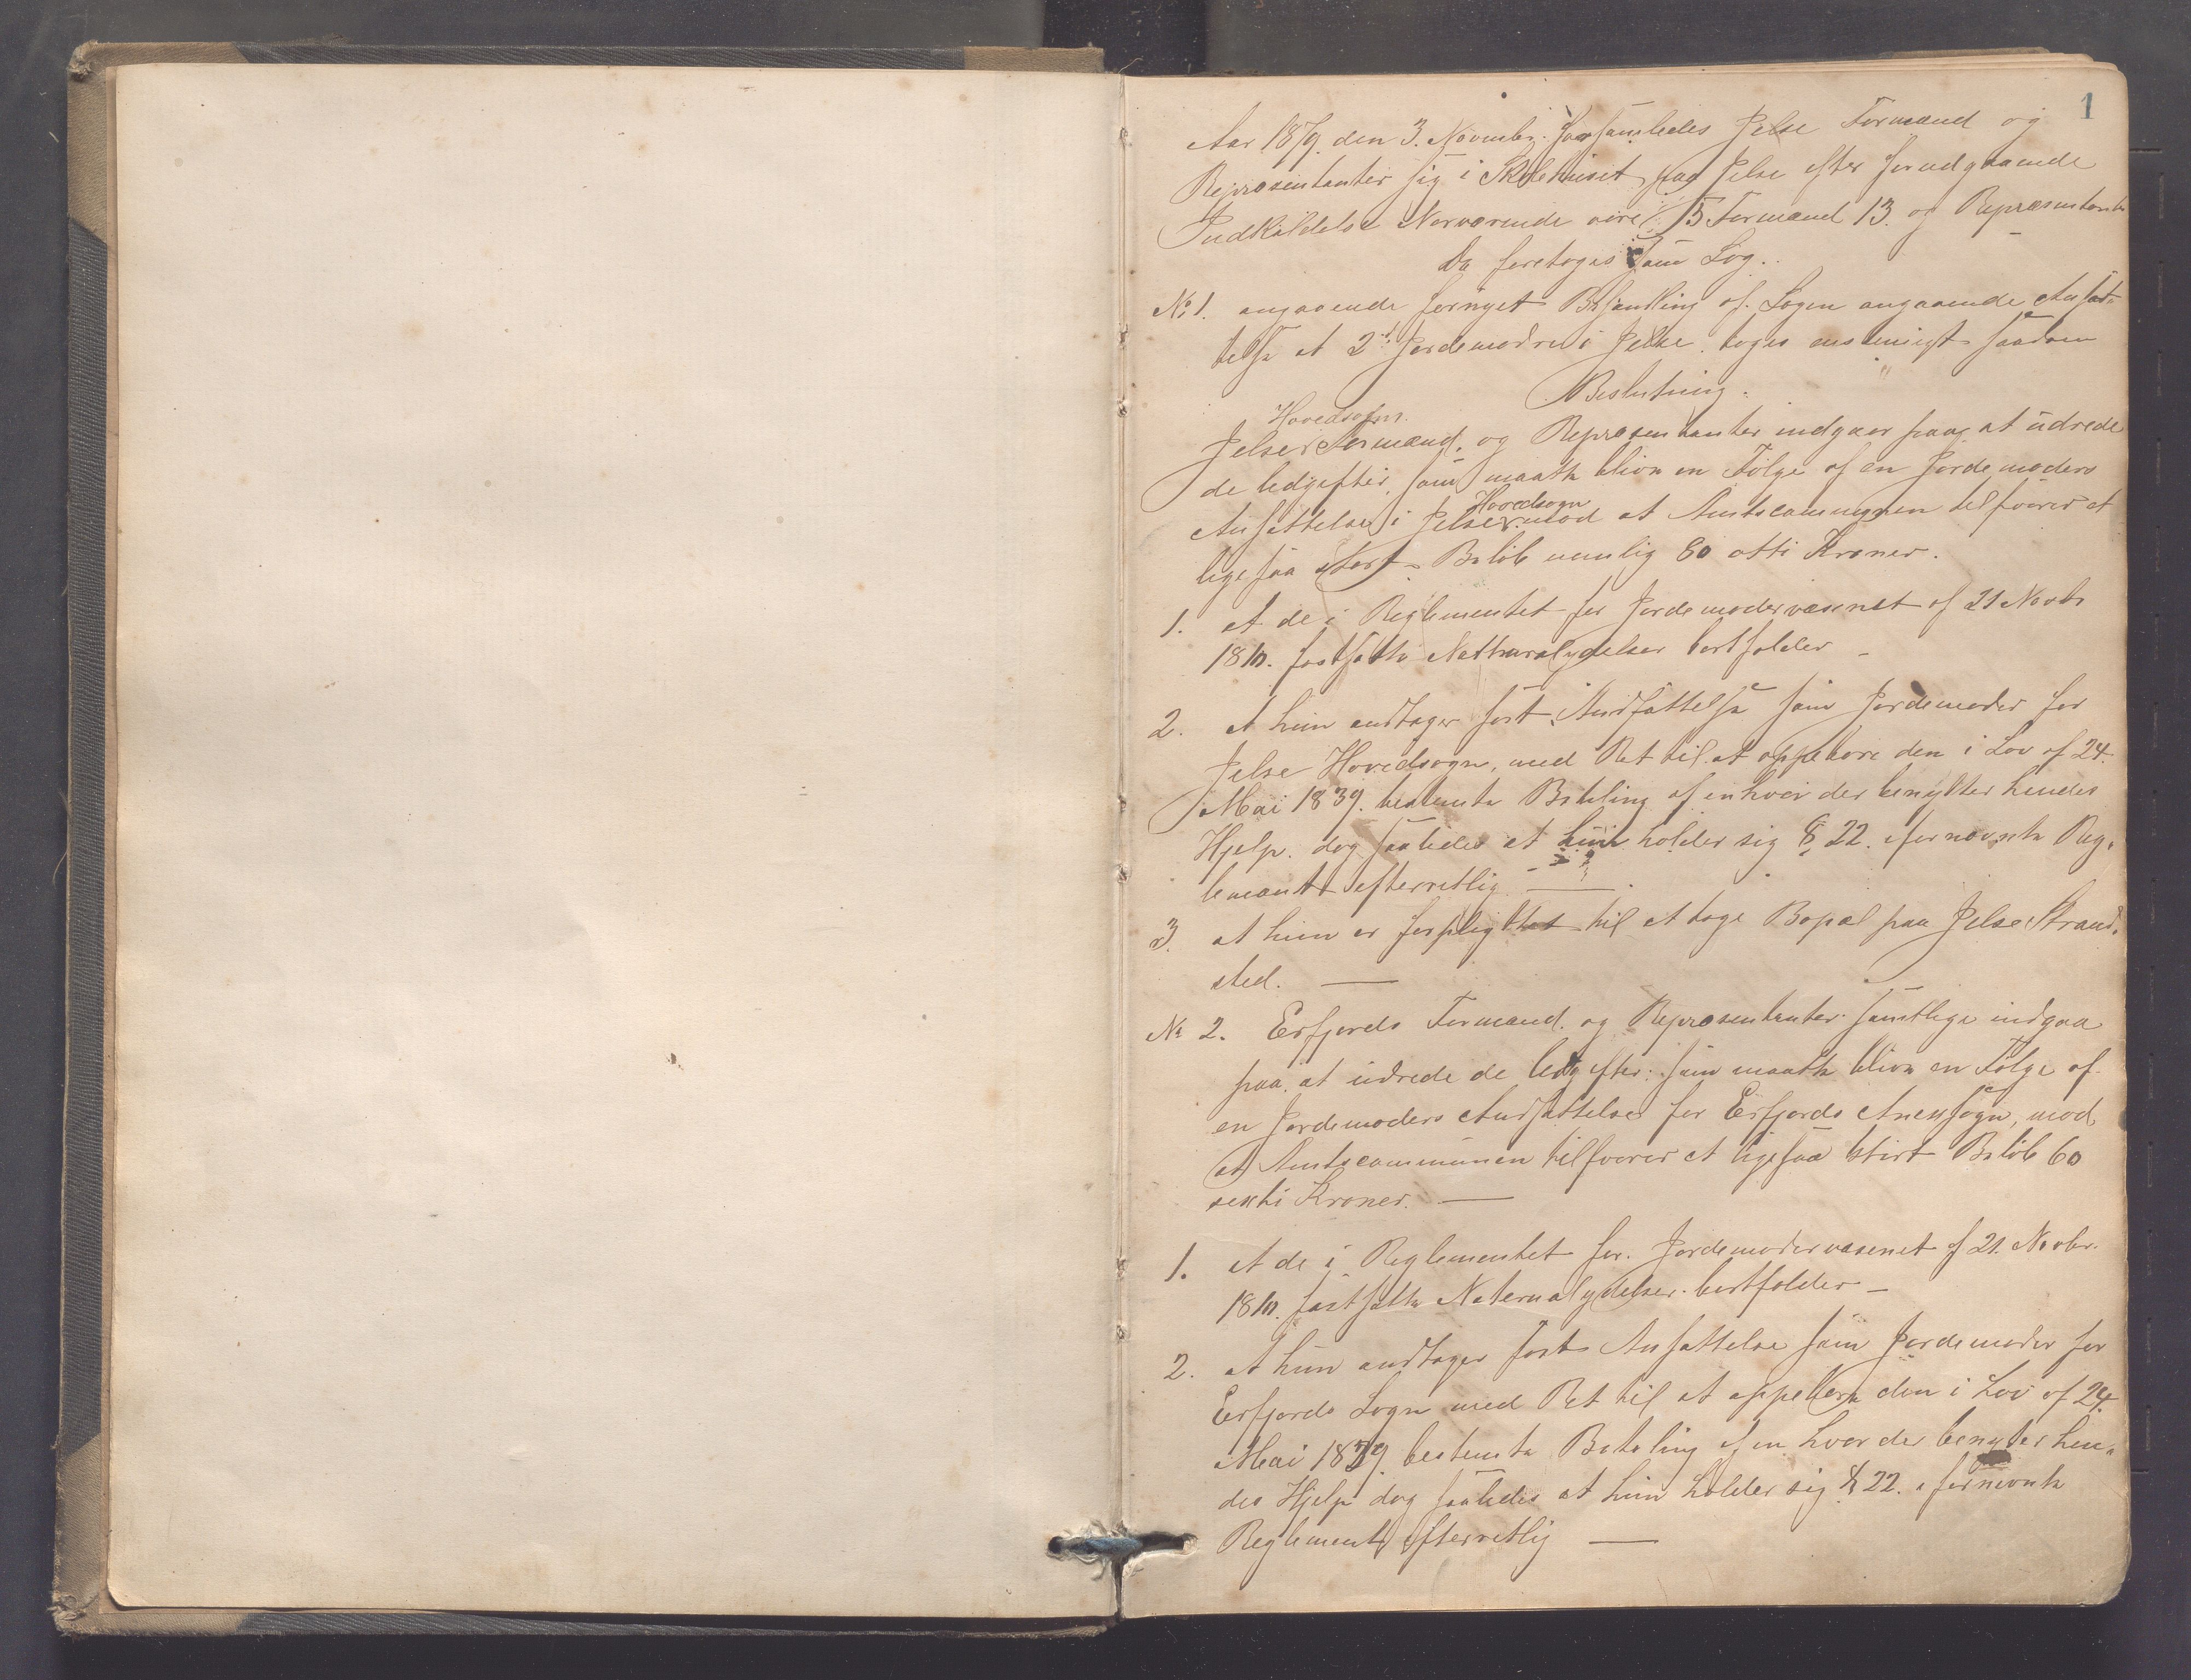 1
Aar 1879. den 3. Novembr. forsamledes Jelse Formænd og
Repræsentanter sig i Skolehuset paa Jelse efter forudgaaende
Indkaldelse Nærværende vare 5 Formænd 13. og Repræsentanter
Da foretoges som Sag..
No 1. angaaende fornyet Behandling af. Sagen angaaende Ansæt-
telse at 2de Jordemødre i Jelse. toges eenstemigt saadan
Beslutning.
Hovedsogns
Jelse Formænd. og Repræsentanter indgaar paa at udrede
de Udgifter, som maatte blive en Følge af en Jordemoders
Hovedsogn
Ansættelse i Jelse mod at Amtscommunen tilsvarer et
ligesaa stort Beløb nemlig 80 otti Kroner.
1. At de i Reglementet for Jordemodervæsenet af 21 Novbr
1810. fastsatte Natturalydelser bortfalder –
2. At hun andtager fast Andsættelse som Jordemoder for
Jelse Hovedsogn, med Ret til at oppebære den i Lov af 24.
Mai 1839. bestemte Betaling af enhver der benytter hendes
Hjelp. dog saaledes at hun holder sig § 22. i fornævnte Reg-
lement efterretlig. —
3. at hun er forpligttet til at tage Bopæl paa Jelse Strand-
sted. —
No 2. Erfjords Formænd. og Repræsentanter. samtlige indgaa
paa. at udrede de Udgifter: som maatte blive en Følge af
en Jordemoders Andsættelse for Erfjords Anexsogn, mod
at Amtscommunen tilsvarer et ligesaa stort Beløb 60
sexti Kroner. —
1. At de i Reglementet for. Jordemodervæsenet af 21. Novbr.
1810. fastsatte Naturalydelser. bortfalder –
2. At hun andtager fast Ansættelse som Jordemoder for
Erfjords Sogn med Ret til at oppebære den i Lov af 24.
Mai 1839 bestemte Betaling af en hver der benyter hen-
des Hjelp dog saaledes at hun holder sig § 22. i fornævnte
Reglement efterretlig —